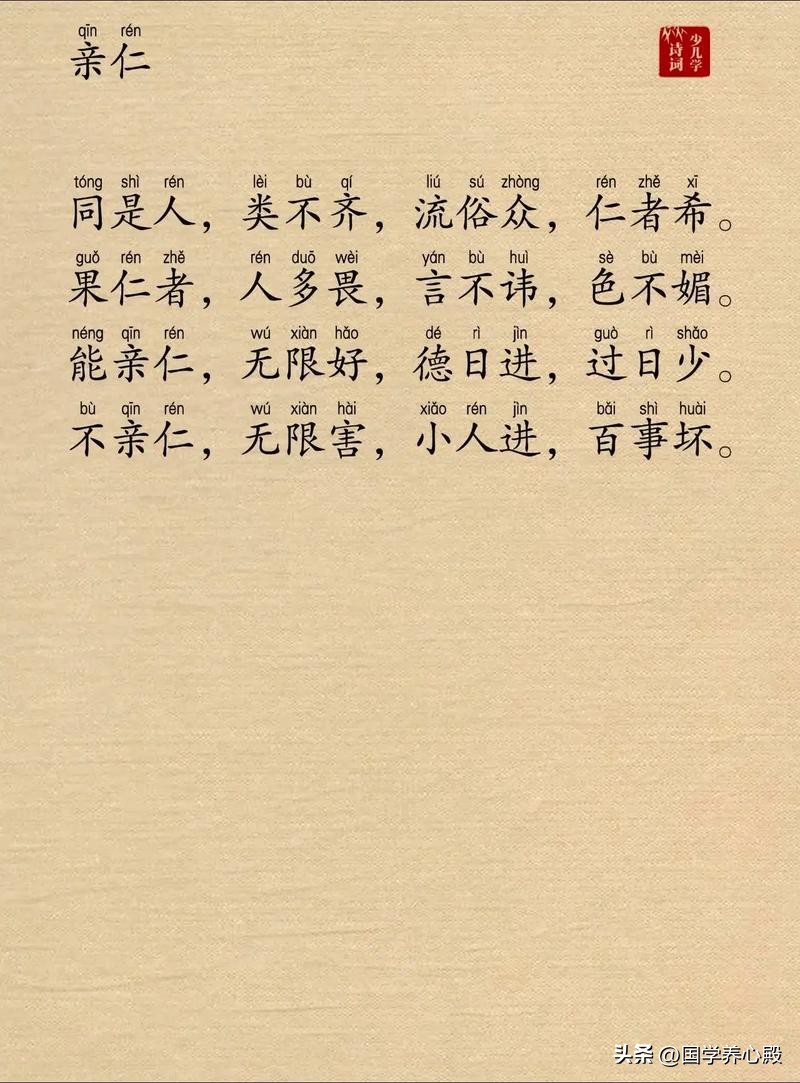 qīn rén
亲仁
少儿学
诗词
tóng shì rén lèi bù qí liú sú zhòng rén zhě xī
同是人，类不齐，流俗众，仁者希。
guǒ rén zhě rén duō wèi yán bù huì sè bù mèi
果仁者，人多畏，言不讳，色不媚。
néng qīn rén wú xiàn hǎo dé rì jìn guò rì shǎo
能亲仁，无限好，德日进，过日少。
bù qīn rén wú xiàn hài xiǎo rén jìn bǎi shì huài
不亲仁，无限害，小人进，百事坏。
头条 @国学养心殿